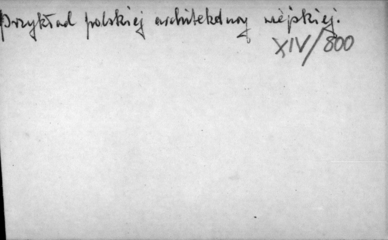 Przykład polskiej architektury miejskiej.
XIV/800